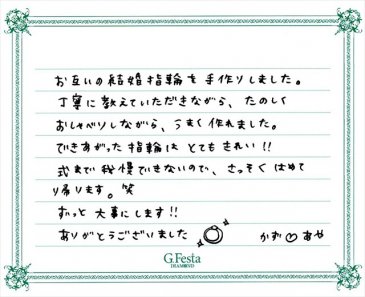 お互いの結婚指輪を手作りしました。
丁寧に教えていただきながら、たのしく
おしゃべりしながら、うまく作れました。
できあがった指輪は とてもきれい!!
式まで我慢できないので、さっそくはめて
り帰ります。笑
ずっと 大事にします!!
ありがとうございました かず♡あや
G.Festa
DIAMOND